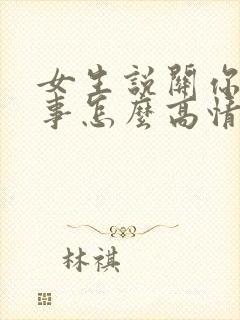 女生說關你
事怎麼高情
林祺